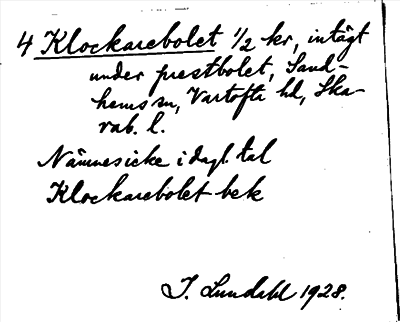 4 Klockarebolet 1/2 kr, intägt
under prestbolet, Sand-
hems sn, Vartofta hd, Ska-
rab. l.
Nämnes icke i dagl. tal
Klockarebolet bek
I. Lundahl 1928.